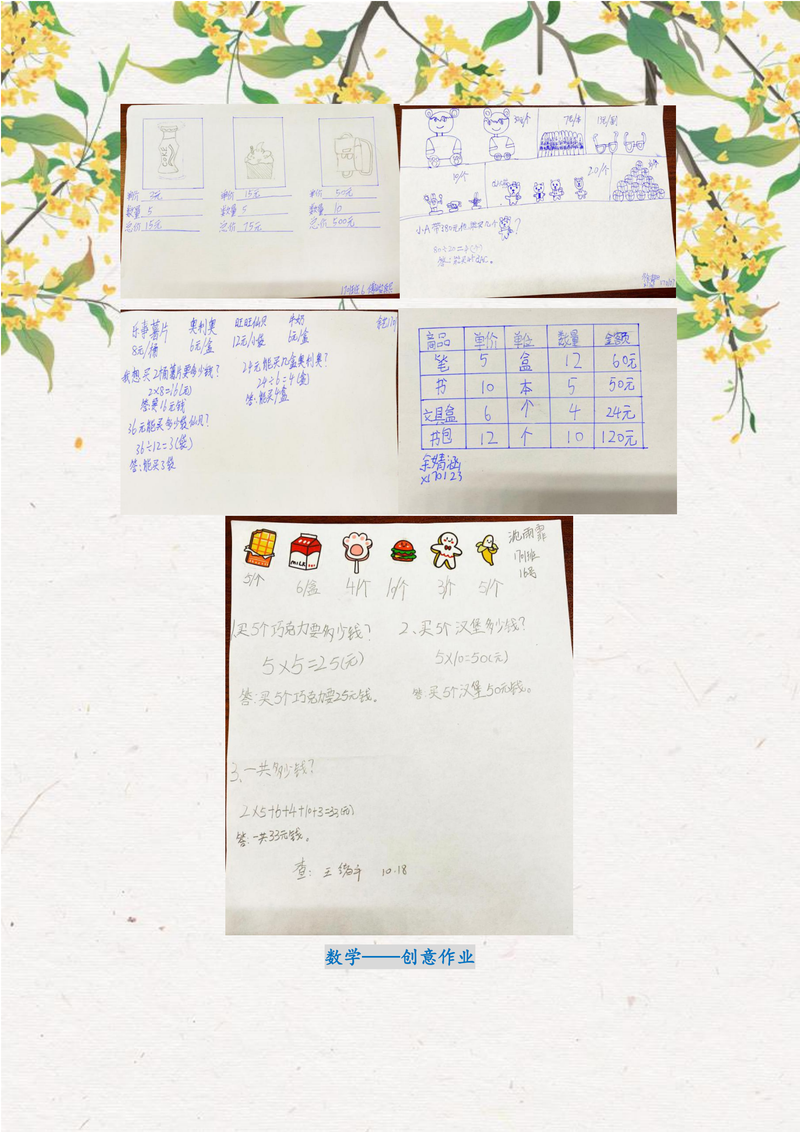 单价 3元
数量 5
总价 15元
单价 15元
数量 5
总价 75元
单价 50元
数量 10
总价 500元
7元/本
10/个
20/个
小A带
答:
乐事薯片 奥利奥 旺旺仙贝 牛奶
8元/桶 6元/盒 12元/小袋 6元/盒
我想买2桶薯片要多少钱?
2×8=16(元)
答:要16元钱
36元能买多少袋仙贝?
36÷12=3(袋)
答:能买3袋
24元能买几盒奥利奥?
24÷6=4(盒)
答:能买4盒
商品 单价 单位 数量 金额
笔 5 盒 12 60元
书 10 本 5 50元
文具盒 6 个 4 24元
书包 12 个 10 120元
余婧涵
x170123
MILK
沈雨霏
1701班
16号
5/个 6/盒 4/个 10/个 3/个 5/个
1.买5个巧克力要多少钱?
5×5=25(元)
答:买5个巧克力要25元钱。
2、买5个汉堡多少钱?
5×10=50(元)
答:买5个汉堡50元钱。
3、一共多少钱?
2×5+6+4+10+3=33(元)
答:一共33元钱。
查: 10.18
数学——创意作业